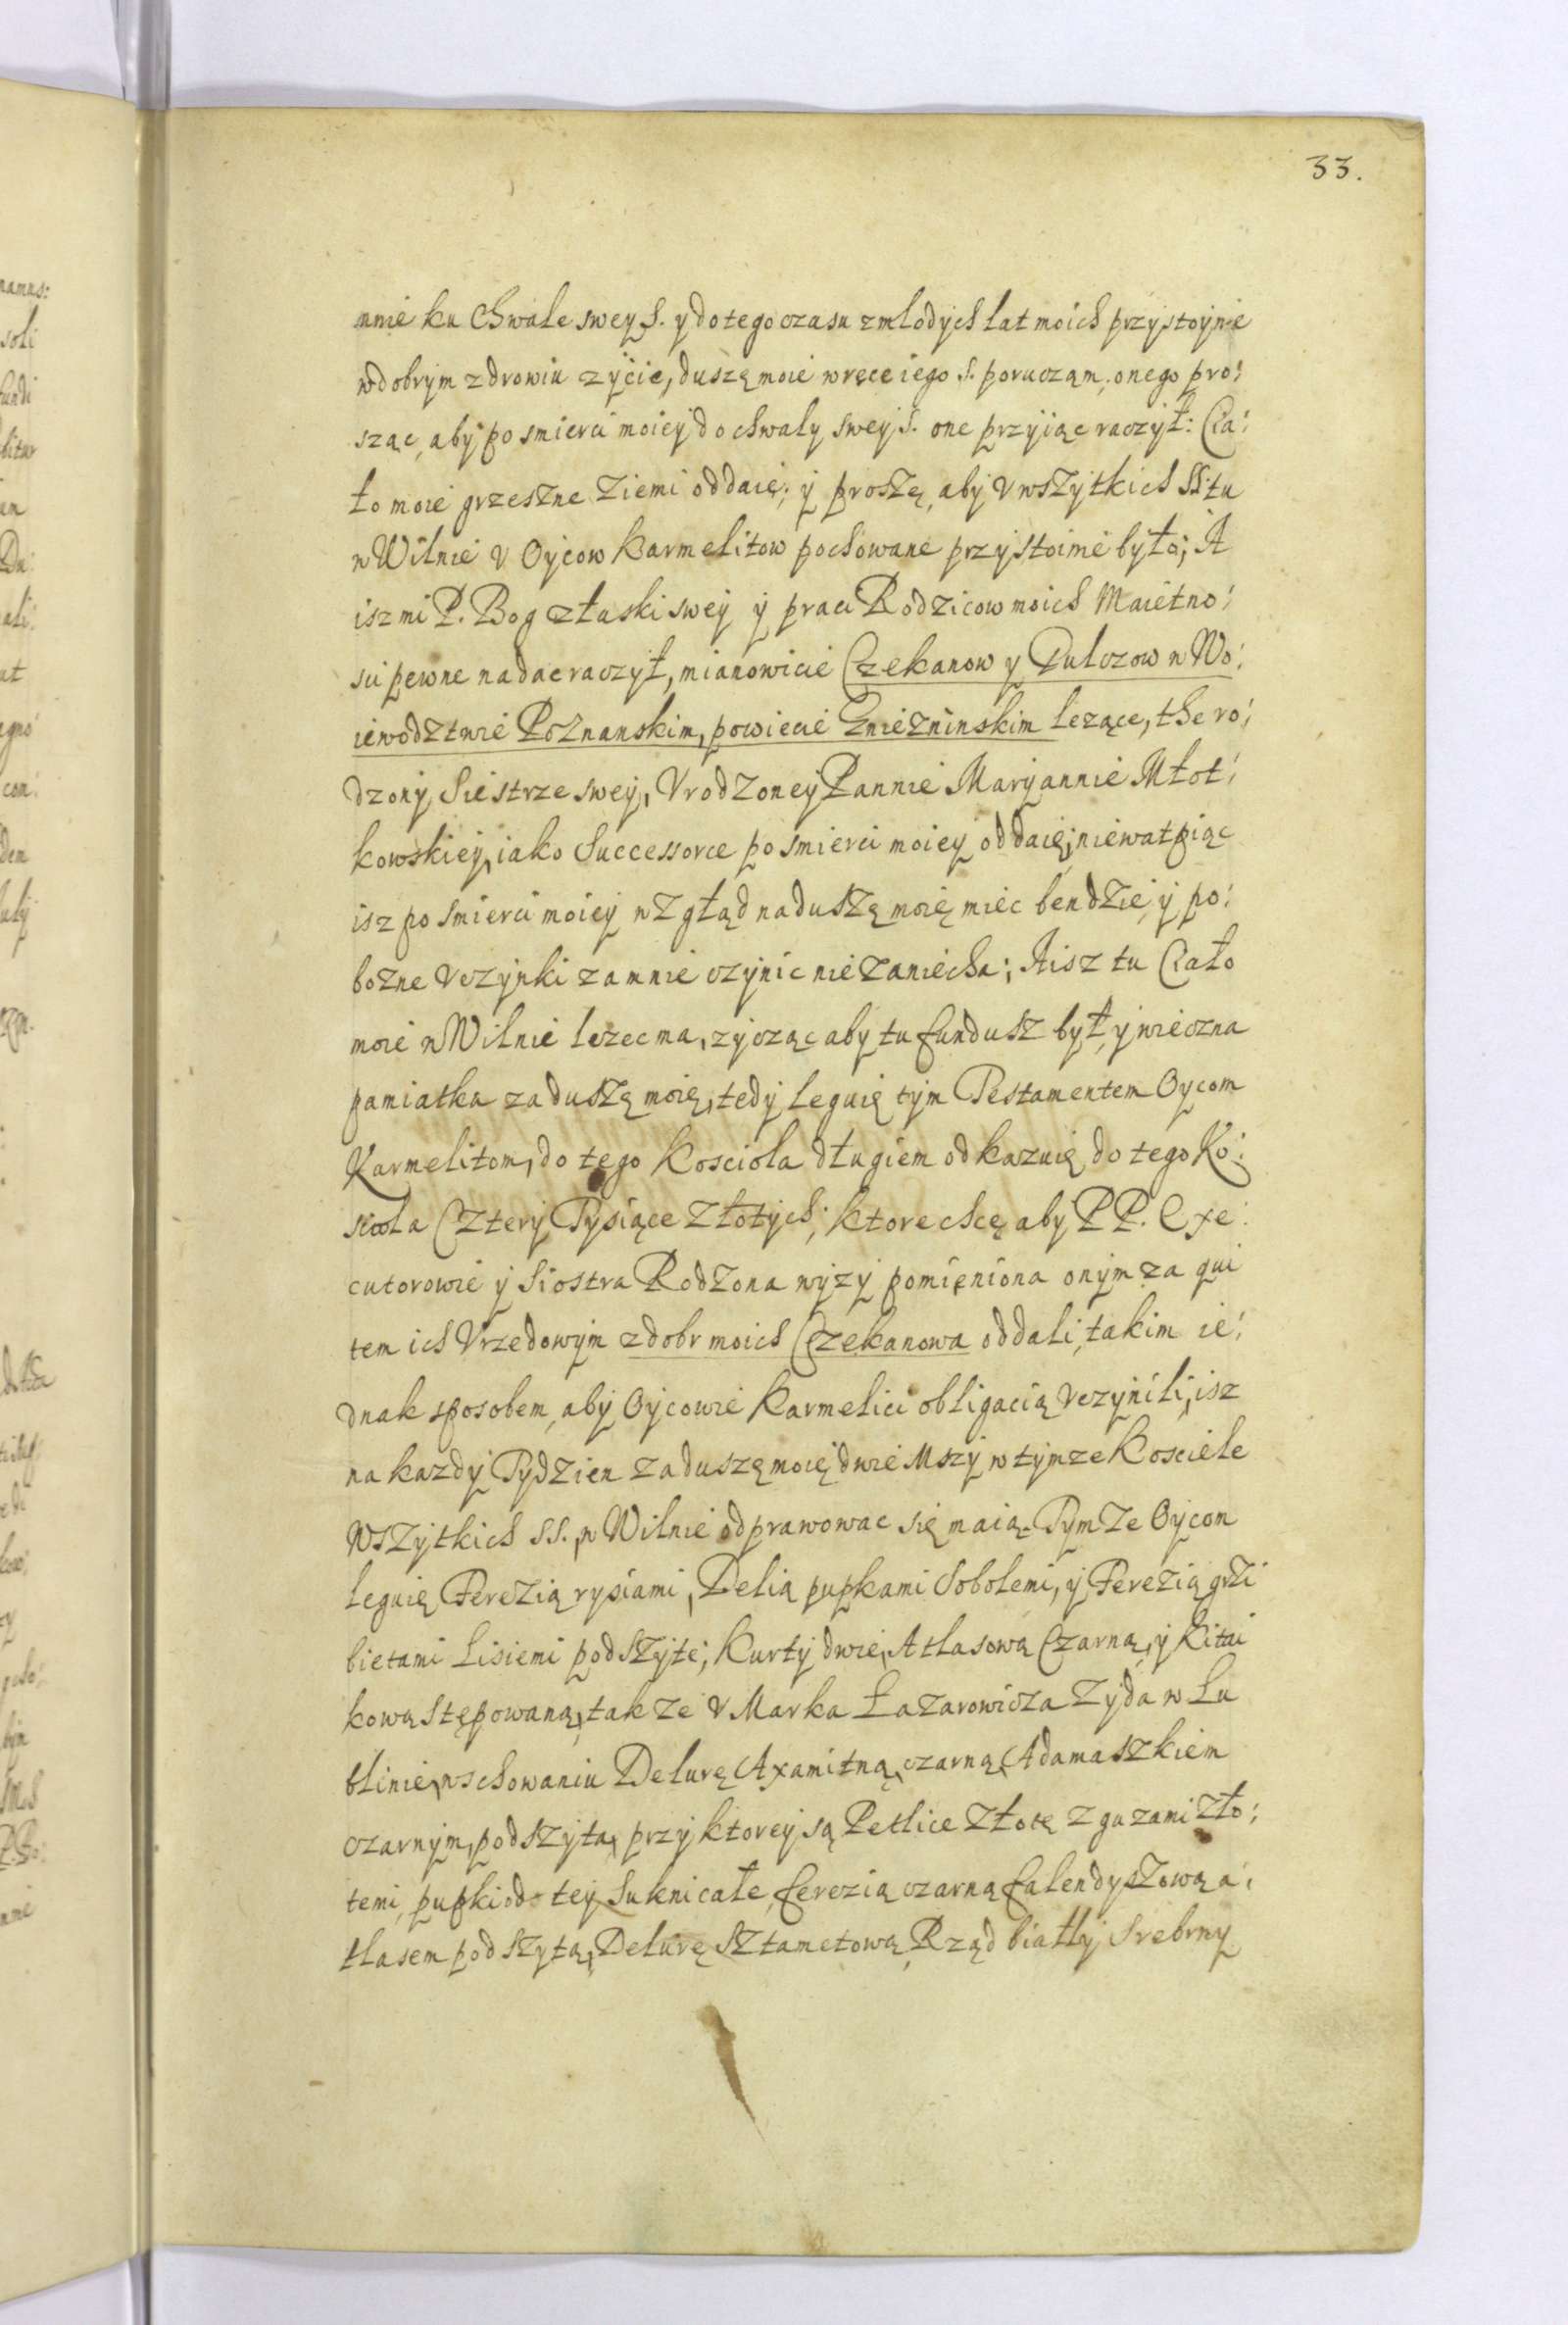 33.
mnie ku Chwale swey S. y do tego czasu z mlodych lat moich przystoynie
w dobrym zdrowiu zycie, duszę moie w ręce iego S. poruczam, onego pro:
sząc, aby po smierci moiey do chwaly swey S. one przyiąc raczył: Cia:
ło moie grzeszne Ziemi oddaię; y proszę, aby V wszytkich SS. tu
w Wilnie V Oycow Karmelitow pochowane przystoinie było; A
isz mi P. Bog z łaski swey y praci Rodzicow moich Maietno:
sci pewne nadac raczył, mianowicie Czekanow y Dulczow w Wo:
iewodztwie Poznanskim, powiecie Gniezninskim lezące, the ro:
dzony Siestrze swey, Vrodzoney Pannie Maryannie Młot:
kowskiey, iako Successorce po smierci moiey oddaię; niewatpiąc
isz po smierci moiey wzgłąd na duszę moię miec bendzie, y po:
bozne Vczynki za mnie czynic nie zaniecha; A isz tu Ciało
moie w Wilnie lezec ma, zycząc aby tu fundusz był, y wieczna
pamiatka za duszę moię, tedy leguię tym Testamentem Oycom
Karmelitom, do tego Kosciola długiem odkazuię do tego Ko:
sciola Cztery Tysiące Złotych; ktore chcę aby PP. Exe:
cutorowie y Siostra Rodzona wyzy pomięniona onym za qui
tem ich Vrzedowym z dobr moich Czekanowa oddali, takim ie:
dnak sposobem, aby Oycowie Karmelici obligacią Vczynili, isz
na kazdy Tydzien za duszę moię dwie Mszy w tymze Kosciele
Wszytkich SS., w Wilnie odprawowac się maią. Tymze Oycom
leguię Ferezią rysiami, Delią pupkami Sobolemi, y Ferezią grzi
bietami Lisiemi podszyte; Kurty dwie, Atlasową Czarną, y Kitai
kową Stępowaną, takze V Marka Łazarowicza Zyda w Lu
blinie, w schowaniu Delurę Axamitną czarną, Adamaszkiem
czarnym, podszyta, przy ktorey są Petlice Złotę z guzami zło:
temi, pupki od tey Sukni całe, ferezią czarną falendyszową a:
tlasem podszytą, Delurę Sztametową, Rząd biatły Srebrny